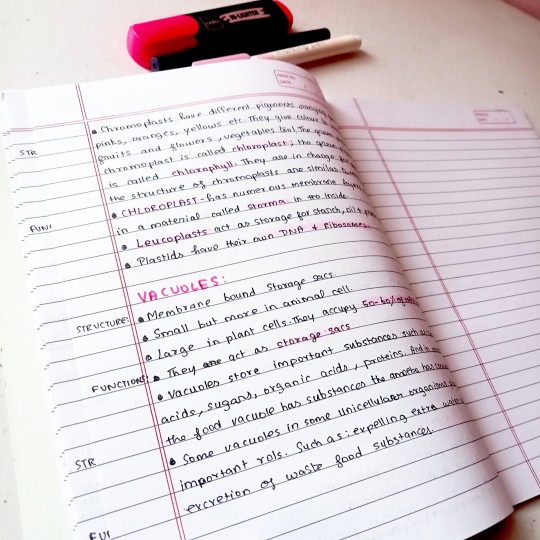 HI-LIGHTER
PAGE NO.
DATE
PAGE
DATE
• Chromoplasts have different pigments
pinks, oranges, yellows etc. They give colour
STR
fruits and flowers, vegetables too! The green
chromoplast is called chloroplast; the
is called chlorophyll. They are in charge
the structure of chromoplasts are similar
FUNI
• CHLOROPLAST- has numerous membrane layers
in a material called storma in the inside
• Leucoplasts act as storage for starch, oil +
• Plastids have their own DNA + Ribosomes
VACUOLES:
• Membrane bound storage sacs
STRUCTURE: • Small but more in animal cell.
• Large in plant cells. They occupy 50-
• They are act as storage sacs
FUNCTIONS: • Vacuoles store important substances such
acids, sugars, organic acids, proteins.
the food vacuole has substances the amoeba has
STR
• Some vacuoles in some unicellular
important rols. Such as: expelling extra
excretion of waste food substances.
FUI